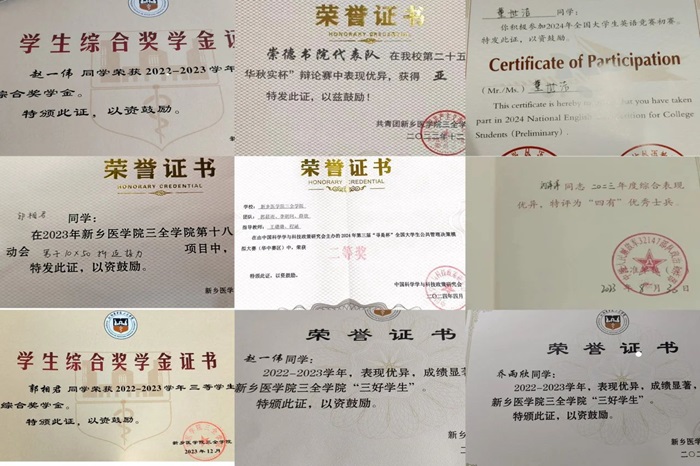 学生综合奖学金证
赵一伟 同学荣获 2022-2023 学年
综合奖学金。
特颁此证,以资鼓励。
荣誉证书
HONORARY CREDENTIAL
崇德书院代表队 在我校第二十五
华秋实杯”辩论赛中表现优异,获得 亚
特发此证,以兹鼓励!
共青团新乡医学院三全学
二〇二三年十二
董世浩 同学:
你积极参加2024年全国大学生英语竞赛初赛。
特发此证,以资鼓励。
Certificate of Participation
(Mr./Ms.) 董世浩
This certificate is hereby that you have taken
part in 2024 National English for College
Students (Preliminary).
荣誉证书
HONORARY CREDENTIAL
郭相君 同学:
在2023年新乡医学院三全学院第十八
动会 项目中,
特发此证,以资鼓励。
新乡医学
荣誉证书
HONORARY CREDENTIAL
学校: 新乡医学院三全学院
团队:
指导教师:
在由中国科学学与科技政策研究会主办的2024年第三届 全国大学生公共管理决策模
拟大赛(华中赛区)中,荣获
二等奖
特颁此证,以资鼓励。
中国科学学与科技政策研究会
二〇二四年四月
同志 2023年度综合表现
优异,特评为“四有”优秀士兵。
32147部队
2023
学生综合奖学金证书
郭相君 同学荣获 2022-2023 学年 三等学生
综合奖学金。
特颁此证,以资鼓励。
新乡医学院三全学院
2023年12月
荣誉证书
赵一伟同学:
2022-2023学年,表现优异,成绩显著
新乡医学院三全学院“三好学生”。
特颁此证,以资鼓励。
新乡医
二〇二
荣誉证书
乔雨欣同学:
2022-2023学年,表现优异,成绩显著,
新乡医学院三全学院“三好学生”。
特颁此证,以资鼓励。
新乡医
二〇二